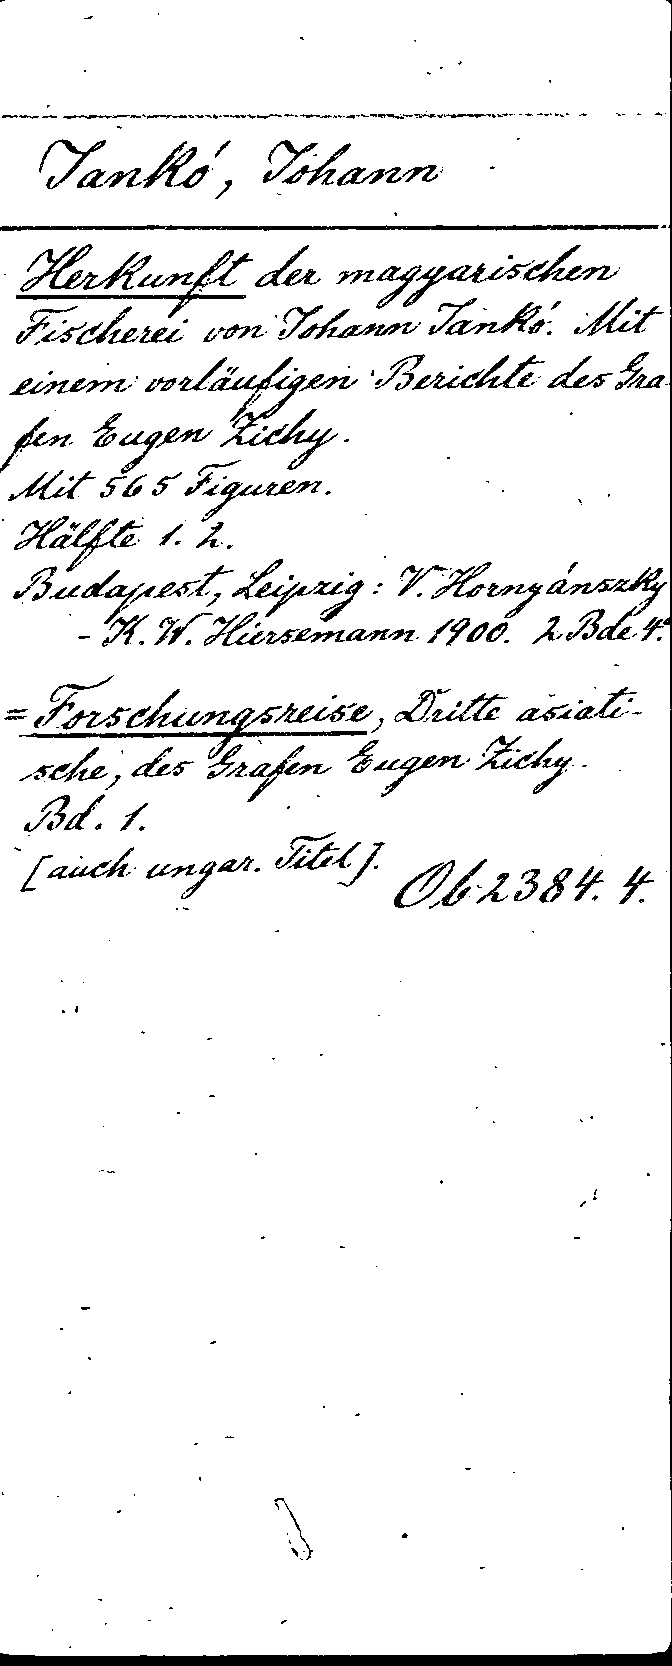 Jankó, Johann
Herkunft der magyarischen
Fischerei von Johann Jankó. Mit
einem vorläufigen Berichte des Gra
fen Eugen Zichy.
Mit 565 Figuren.
Hälfte 1. 2.
Budapest, Leipzig: V. Hornyánszky
- K. W. Hiersemann 1900. 2 Bde 4.°
= Forschungsreise, Dritte asiati-
sche, des Grafen Eugen Zichy.
Bd. 1.
[auch ungar. Titel].
Ob 2384. 4.